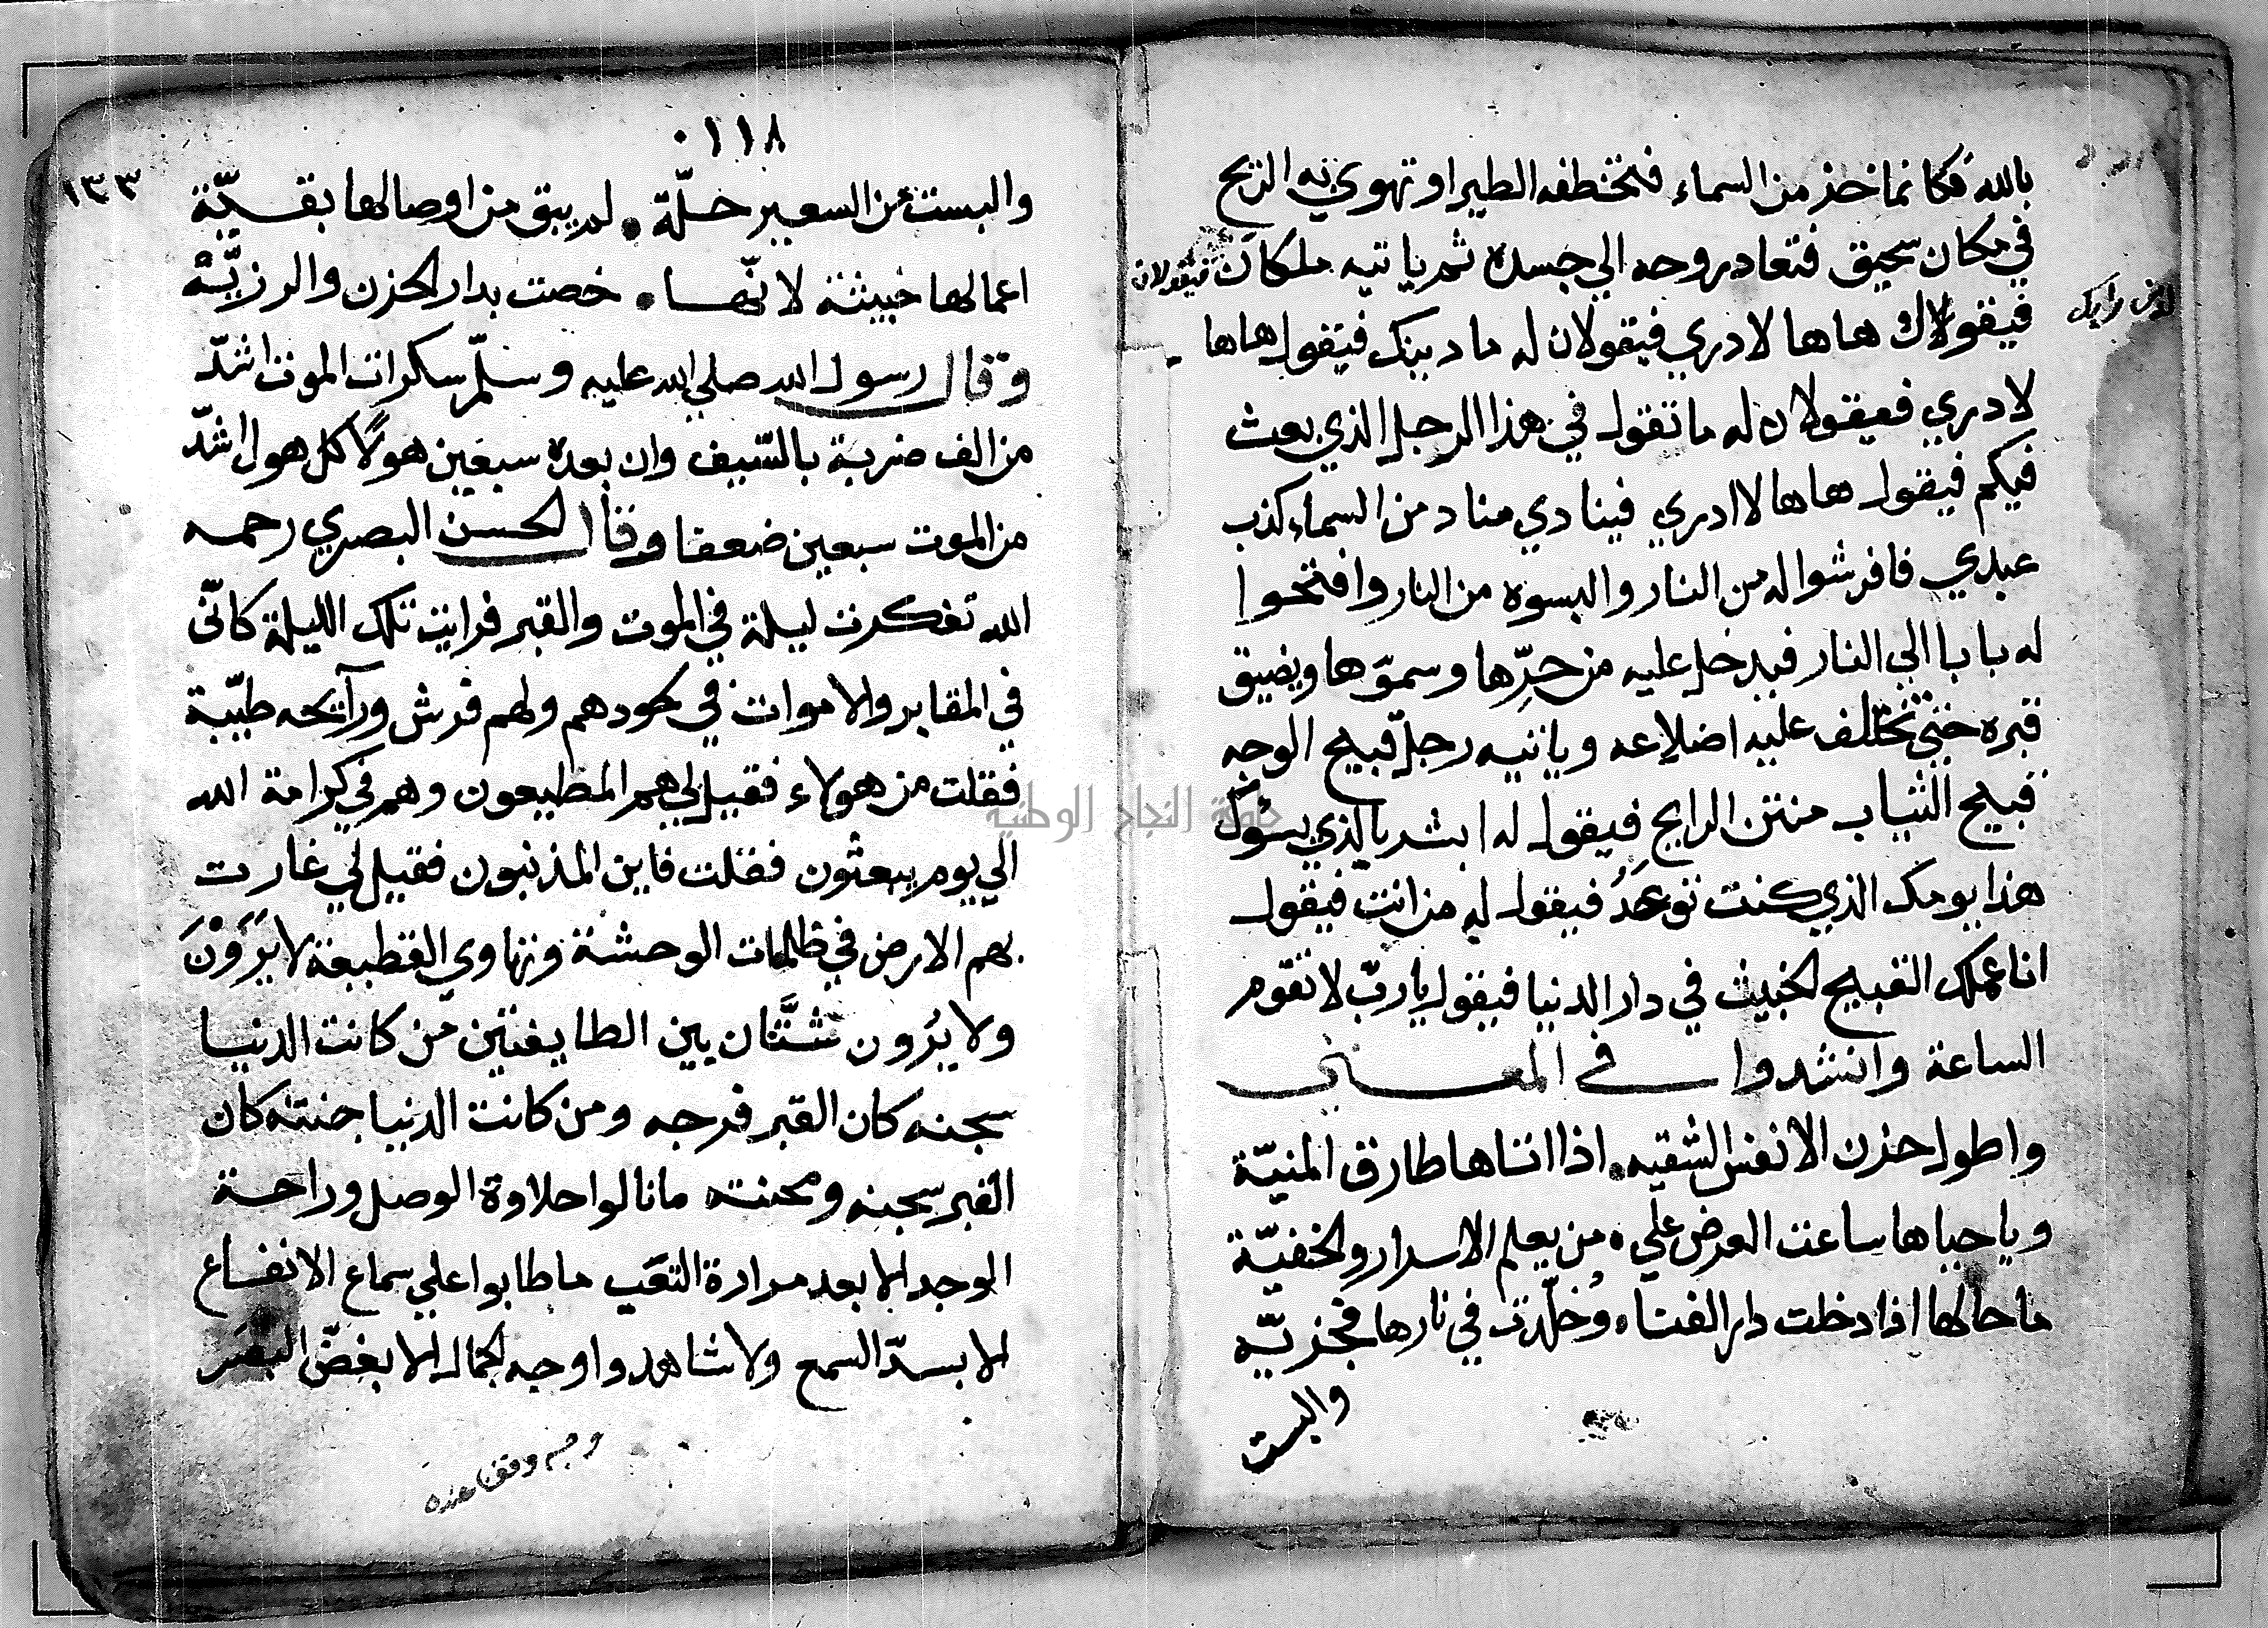 بالله فكانما خر من السماء فتخطفه الطير او تهوي به الريح
في مكان سحيق فتعاد روحه الي جسده ثم ياتيه ملكان فيقولان
فيقولان هاها لا دري فيقولان له ما دينك فيقول هاها
لا دري فيقولان له ما تقول في هذا الرجل الذي بعث
فيكم فيقول هاها لا ادري فينادي مناد من السماء كذب
عبدي فافرشوا له من النار والبسوه من النار وافتحوا
له بابا الي النار فيدخل عليه من حرّها وسموّمها ويضيق
قبره حتي تختلف عليه اضلاعه وياتيه رجل قبيح الوجه
قبيح الثياب منتن الرايح فيقول له ابشر بالذي يسؤك
هذا يومك الذي كنت توعد فيقول له من انت فيقول
انا عملك القبيح الخبيث في دار الدنيا فيقول يا ربّ لا تقوم
الساعة وانشدوا في المعني
واطول حزن الانفس الشقيه • اذا اتاها طارق المنيّة
ويا حياها ساعت العرض علي • من يعلم الاسرار والخفيّة
ما حالها اذا دخلت دار الفنا • وخلّدت في نارها مخزيّه
والبست
٠١١٨
١٣٣
والبست من السعير حلّة • لم يبق من اوصالها بقيّة
اعمالها خبيثة لانّها • خصت بدار الحزن والرزيّة
وقال رسول الله صلي الله عليه وسلّم سكرات الموت اشدّ
من الف ضربة بالسّيف وان بعده سبعين هولا كل هول اشدّ
من الموت سبعين ضعفا وقال الحسن البصري رحمه
الله تفكرت ليلة في الموت والقبر فرايت تلك الليلة كانّي
في المقابر والاموات في لحودهم ولهم فرش ورآيحه طيّبة
فقلت من هولاء فقيل لي هم المطيعون وهم في كرامة الله
الي يوم يبعثون فقلت فاين المذنبون فقيل لي غارت
بهم الارض في ظلمات الوحشة وتهاوي القطيعة لا يَرَوْنَ
ولا يُرون شتَّان بين الطايفتين من كانت الدنيا
سجنه كان القبر فرجه ومن كانت الدنيا جنته كان
القبر سجنه ومحنته ما نالوا حلاوة الوصل وراحة
الوجد الا بعد مرارة التعب ما طابوا علي سماع الانفساع
الا بسدّ السمع ولا شاهدوا وجه الجمال الا بغضّ البصر